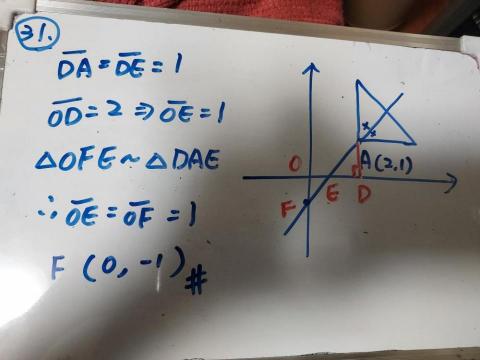 31.
D̅A̅ = D̅E̅ = 1
O̅D̅ = 2 ⇒ O̅E̅ = 1
△OFE ~ △DAE
∴ O̅E̅ = O̅F̅ = 1
F (0, -1) #
O
A(2,1)
E
D
F